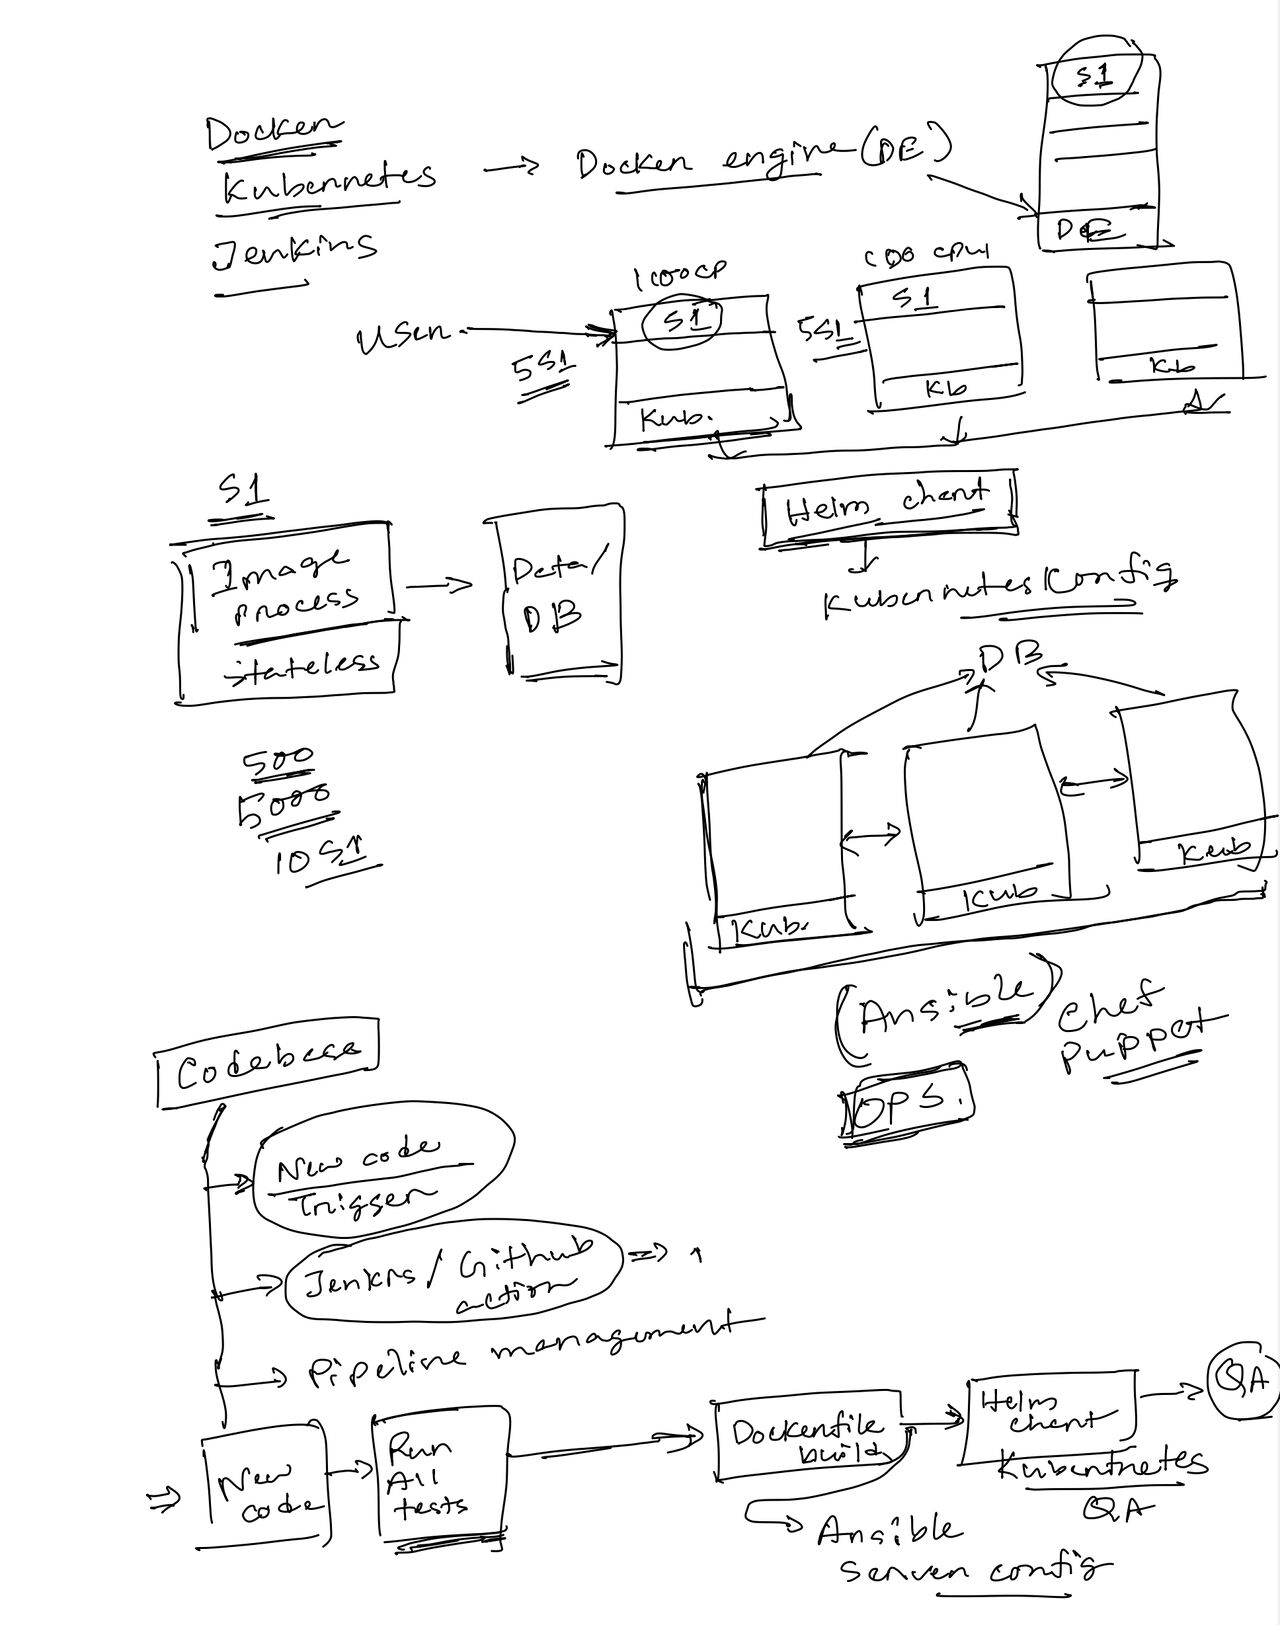 Docker
Kubernetes
Jenkins
Docker engine (DE)
S1
DE
User
1000 CP
S1
5S1
Kub.
100 CPU
S1
5S1
Kb
Kb
Helm chart
Kubernetes Config
S1
Image
process
stateless
Data/
DB
500
5000
10 S1
DB
Kub.
Kub
Kub
(Ansible)
Chef
puppet
OPS.
Codebase
New code
Trigger
Jenkins / Github
action
Pipeline management
New
code
Run
All
tests
Dockerfile
build
Helm
chart
Kubernetes
QA
QA
Ansible
Server config